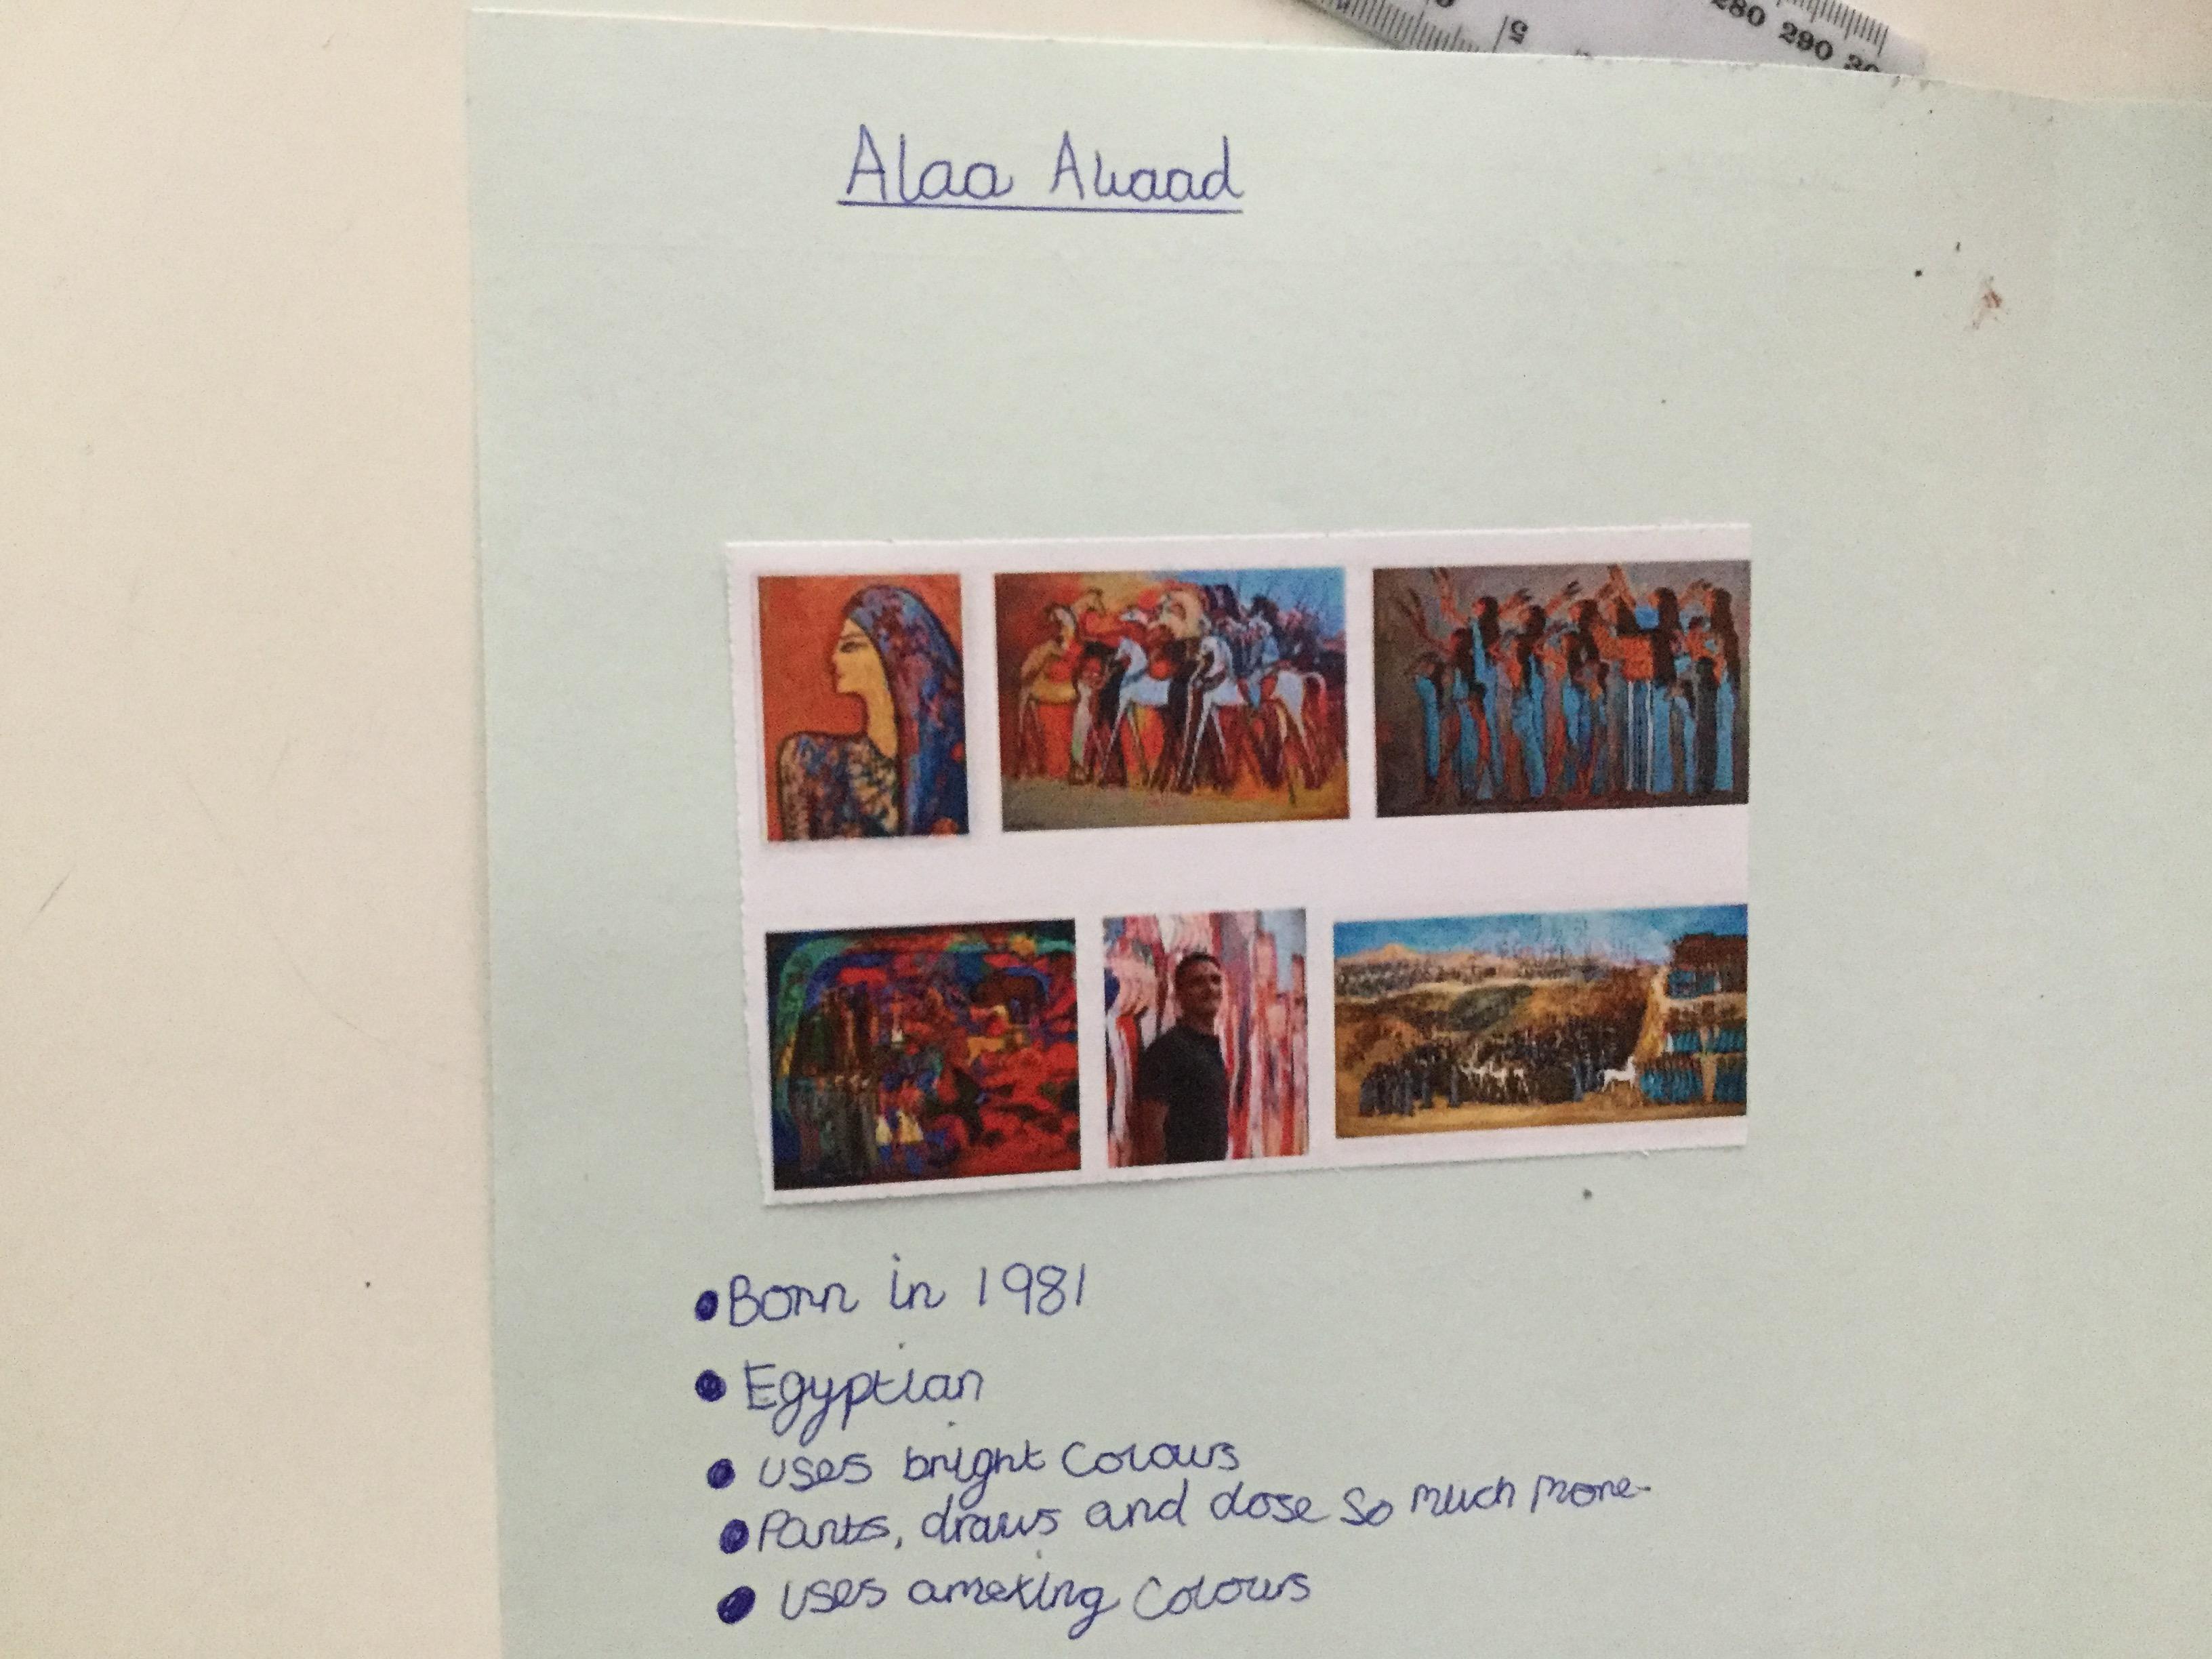 5
280 290 30
Alaa Awaad
• Born in 1981
• Egyptian
• uses bright colours
• Paints, draws and dose so much more.
• uses amazing colours